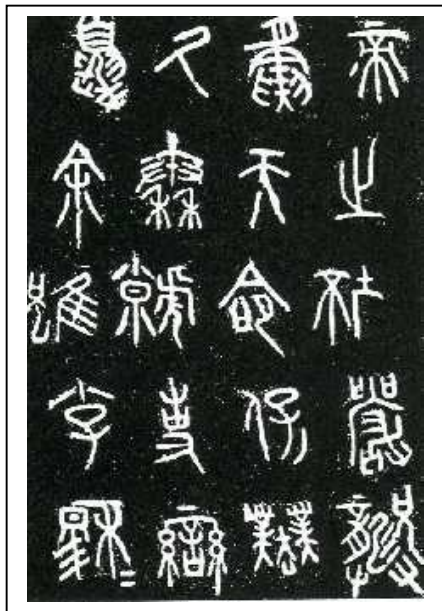 帝之坏嚴龏
夤天命保業
氒秦虩事䜌
夏余雖小子穆=